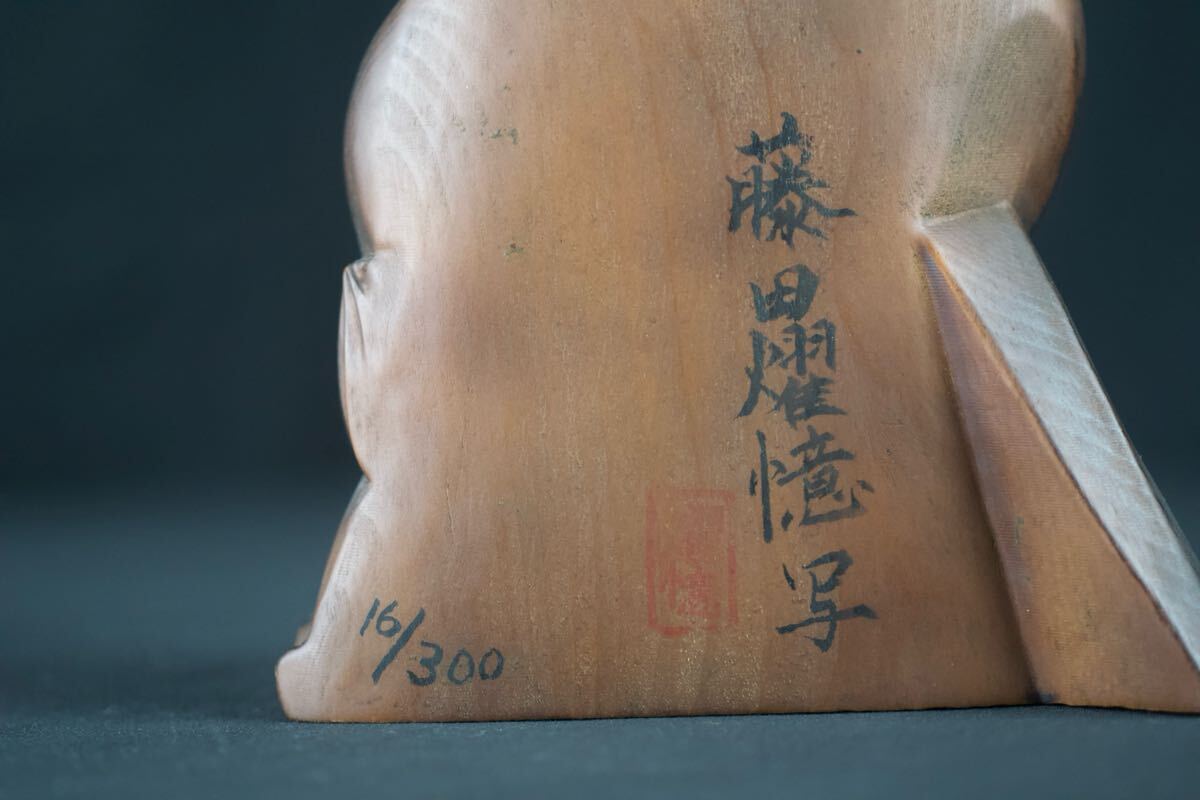 藤田燿憶写
16/300